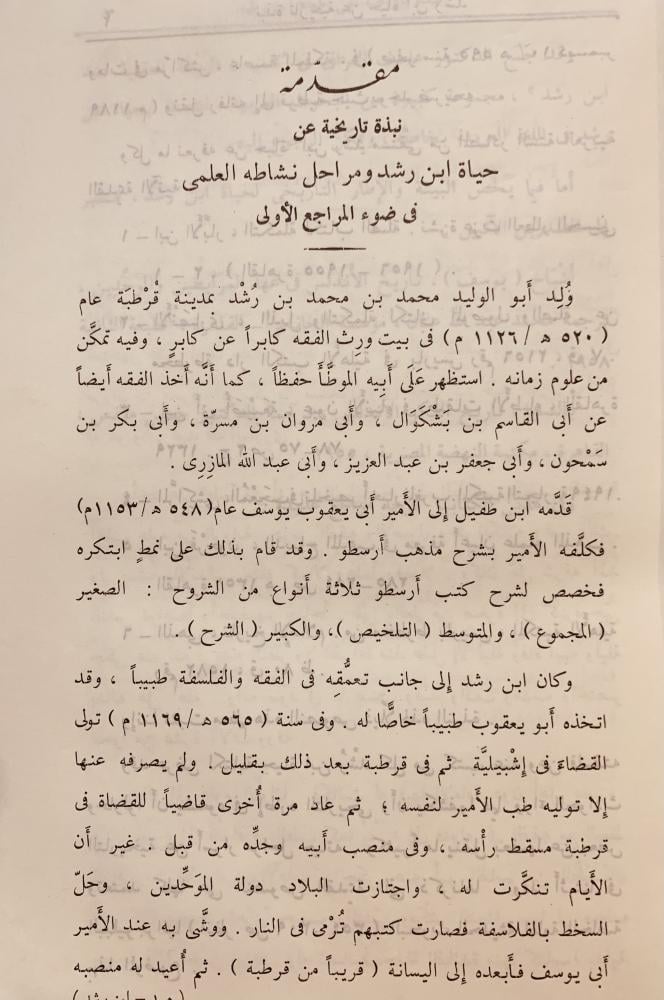 مقدّمة
نبذة تاريخية عن
حياة ابن رشد ومراحل نشاطه العلمى
فى ضوء المراجع الأولى
وُلِد أَبو الوليد محمد بن محمد بن رُشْد بمدينة قُرْطبَة عام
( ٥٢٠ ه / ١١٢٦ م ) فى بيت ورِث الفقه كابراً عن كابرٍ ، وفيه تمكَّن
من علوم زمانه . استظهر عَلَى أَبِيه الموطَّأَ حفظاً ، كما أَنَّه أَخذ الفقه أَيضاً
عن أَبى القاسم بن بَشْكَوَال ، وأَبى مروان بن مسرّة ، وأَبى بكر بن
سَمْحون ، وأَبى جعفر بن عبد العزيز ، وأَبى عبد الله المازِرِى .
قَدَّمه ابن طفيل إِلى الأَمير أَبى يعقوب يوسف عام (٥٤٨ ه/١١٥٣م)
فكلَّفه الأَمير بشرح مذهب أَرسطو . وقد قام بذلك على نمطٍ ابتكره
فخصص لشرح كتب أَرسطو ثلاثة أَنواع من الشروح : الصغير
( المجموع ) ، والمتوسط ( التلخيص )، والكبير ( الشرح ) .
وكان ابن رشد إِلى جانب تعمُّقِه فى الفقه والفلسفة طبيباً ، وقد
اتخذه أَبو يعقوب طبيباً خاصًّا له . وفى سنة ( ٥٦٥ ه / ١١٦٩ م ) تولى
القضاءَ فى إِشْبيليَّة ثم فى قرطبة بعد ذلك بقليل . ولم يصرفه عنها
إِلا توليه طب الأَمير لنفسه ؛ ثم عاد مرة أُخرى قاضياً للقضاة فى
قرطبة مسقط رأْسه ، وفى منصب أَبيه وجدِّه من قبل . غير أَن
الأَيام تنكَّرت له ، واجتازت البلاد دولة الموَحِّدين ، وحَلّ
السخط بالفلاسفة فصارت كتبهم تُرْمى فى النار . ووشَّى به عند الأَمير
أَبى يوسف فأَبعده إِلى اليسانة ( قريباً من قرطبة ) . ثم أُعيد له منصبه